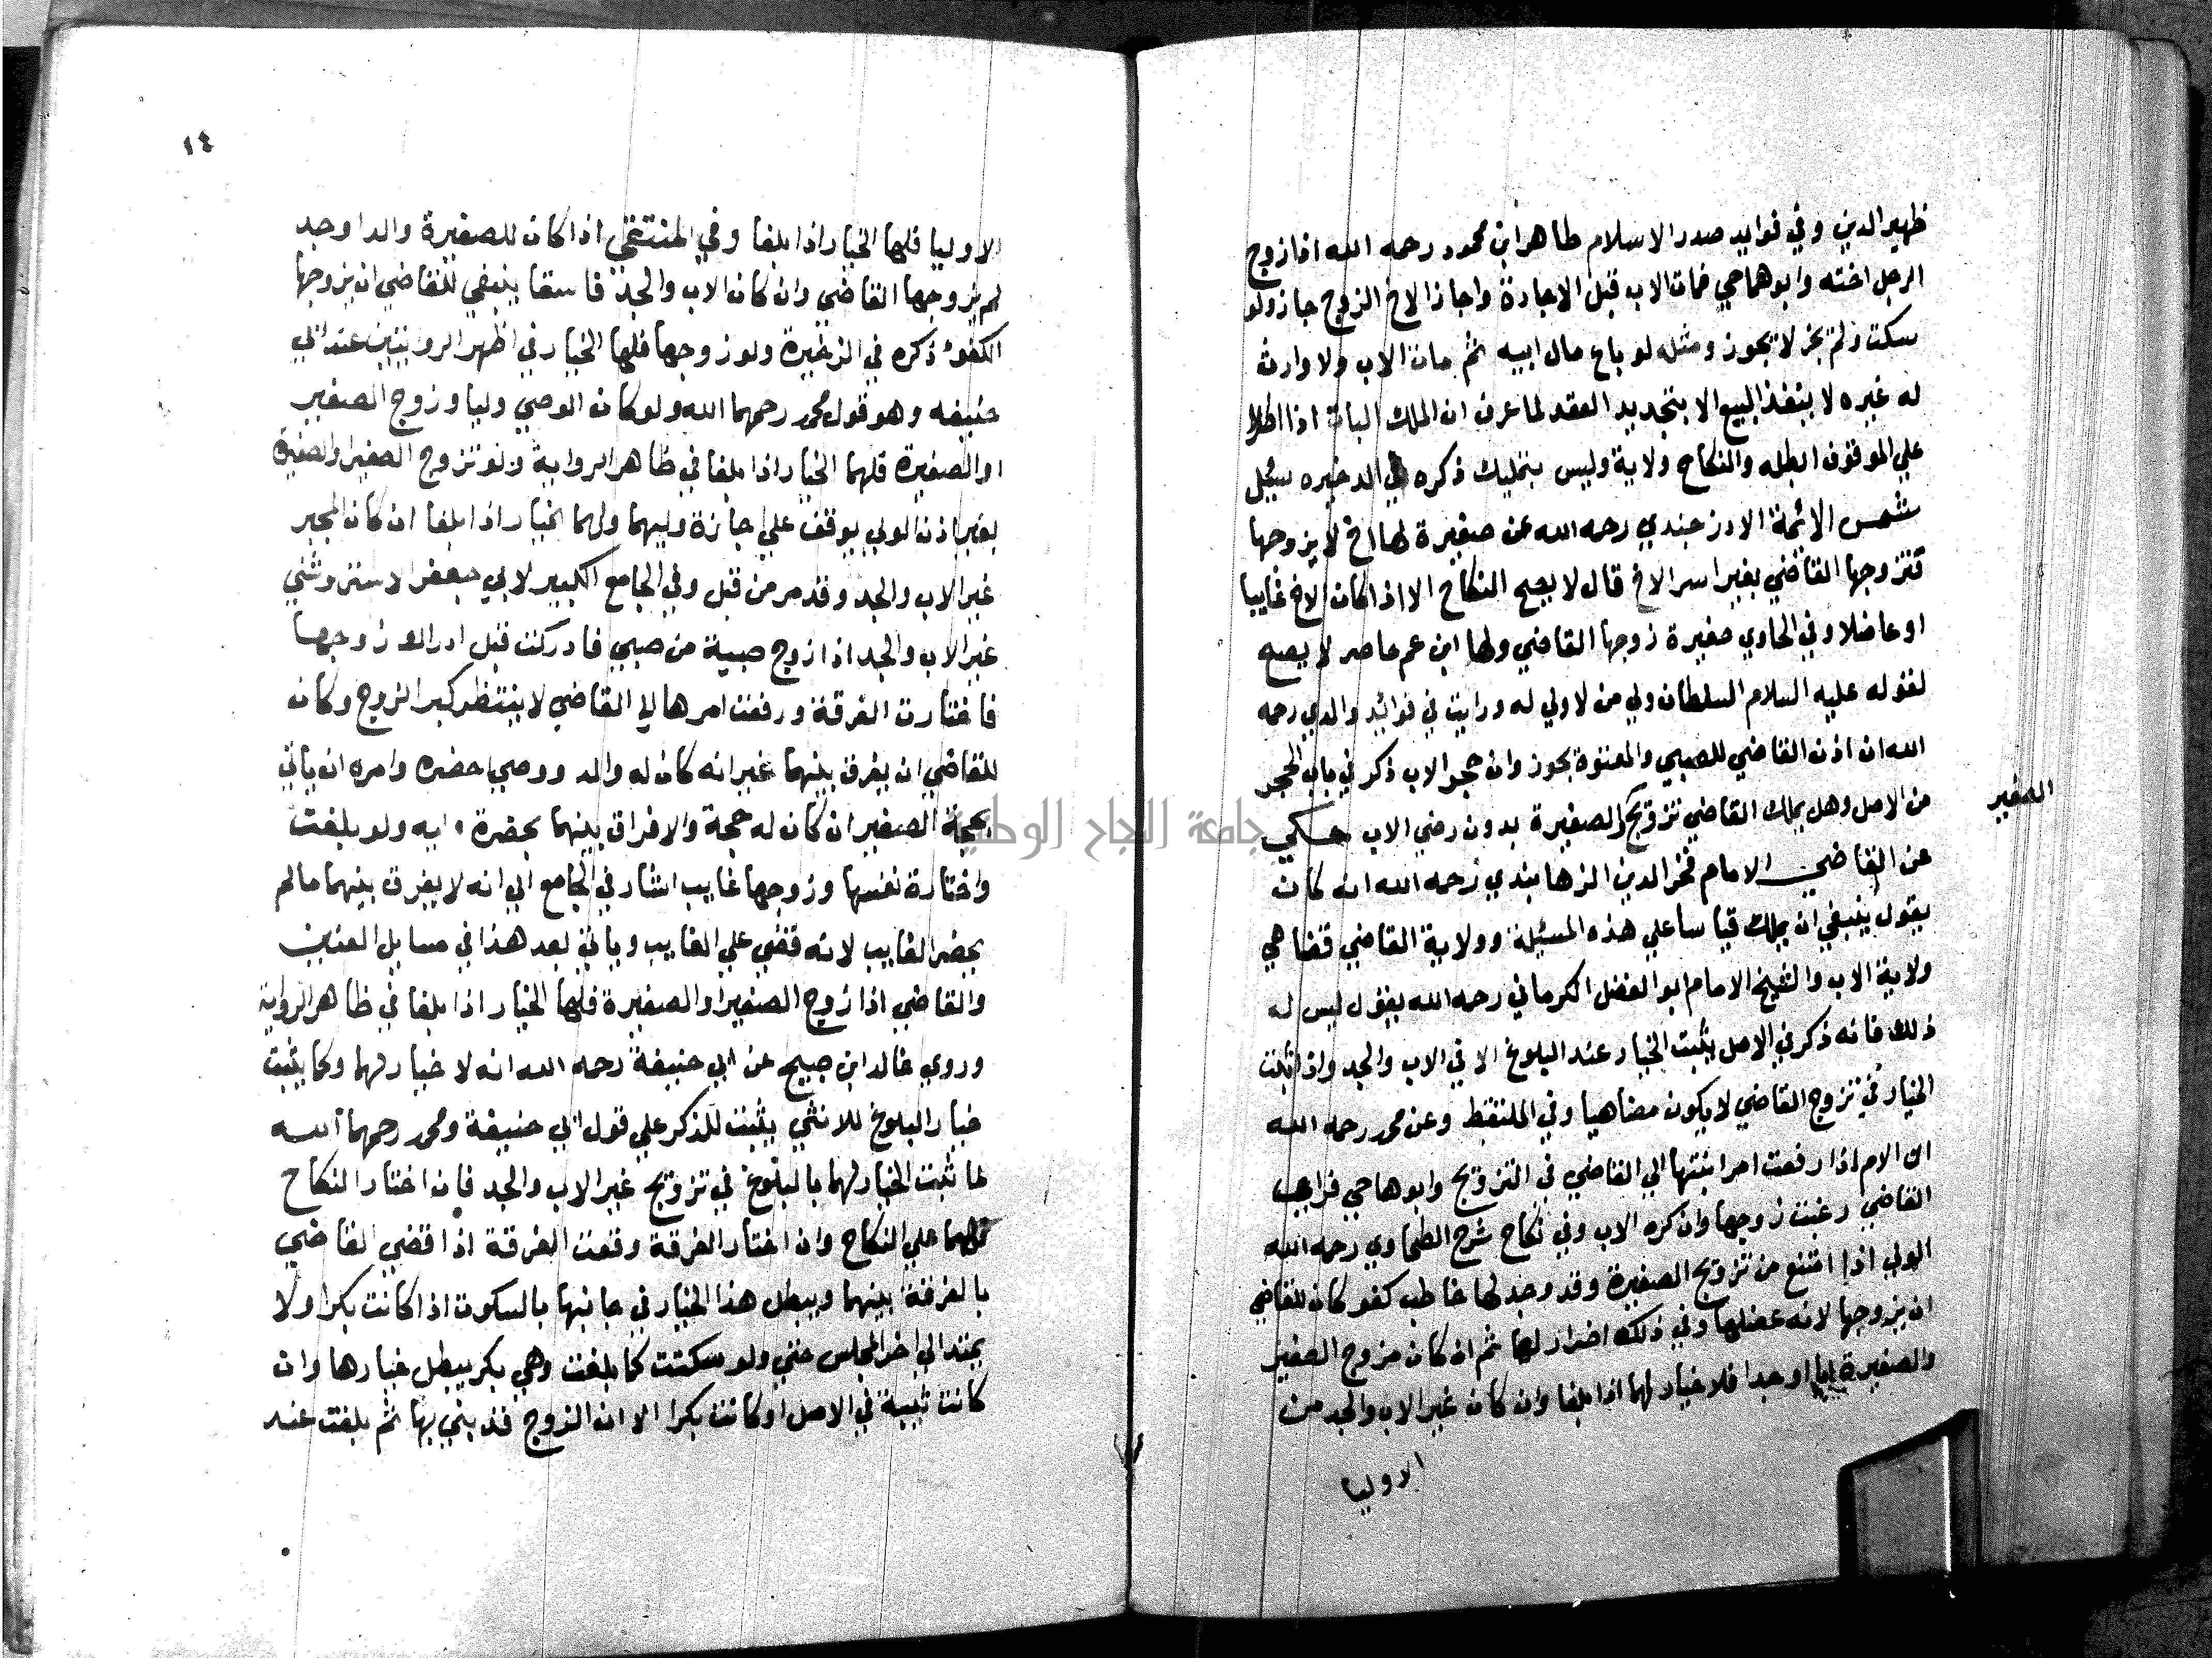 ظهير الدين وفي فوايد صدر الاسلام طاهر ابن محمود رحمه الله اذا زوج
الرجل اخته وابوهما حي فمات الاب قبل الاجازة واجاز الاخ الزوج جاز ولو
سكت ولم يجز لا يجوز ومثله لو باع مال ابيه ثم مات الاب ولا وارث
له غيره لا ينفذ البيع الا بتجديد العقد لما عرف ان الملك البات اذا اطرا
علي الموقوف ابطله والنكاح ولاية وليس بتمليك ذكره في الدخيره سيل
شمس الائمة الاوزجندي رحمه الله عن صغيرة لها اخ لا يزوجها
فتزوجها القاضي بغير امر الاخ قال لا يصح النكاح الا اذا كان الاخ غايبا
او عاضلا وفي الحاوي صغيرة زوجها القاضي ولها ابن عم حاصر لا يصح
لقوله عليه السلام السلطان ولي من لا ولي له ورايت في فوائد والدي رحمه
الله ان اذن القاضي للصبي والمعتوة يجوز وان حجر الاب ذكر في باب الحجر
من الاصل وهل يملك القاضي تزويج الصغيرة بدون رضي الاب حكي
الصغير
عن القاضي الامام فخر الدين الزهابندي رحمه الله انه كان
يقول ينبغي ان يملك قياسا علي هذه المسئلة وولاية القاضي قضاهي
ولاية الاب والشيخ الامام ابو الفضل الكرماني رحمه الله يقول ليس له
ذلك فانه ذكر في الاصل يثبت الخيار عند البلوغ الا في الاب والجد واذا ثبت
الخيار في تزوج القاضي لا يكون مضاهيا وفي الملتقط وعن محمد رحمه الله
ان الام اذا رفعت امر ابنتها الي القاضي في التزويج وابوها حي فراي
القاضي رغبت زوجها وان كره الاب وفي نكاح شرح الطحاوي رحمه الله
الولي اذا امتنع من تزويج الصغيرة وقد وجد لها خاطب كفو كان للقاضي
ان يزوجها لانه عضلها وفي ذلك اضرار لها ثم ان كان مزوج الصغير
والصغيرة ابا او جدا فلا خيار لهما اذا بلغا وان كان غير الاب والجد من
الاوليا
١٤
الاوليا فلهما الخيار اذا بلغا وفي المنتقي اذا كان للصغيرة والد او جد
لم يزوجها القاضي وان كان الاب والجد فاسقا ينبغي للقاضي ان يزوجها
الكفوء ذكره في الذخيرة ولو زوجها فلها الخيار في اظهر الروايتين عند ابي
حنيفه وهو قول محمد رحمهما الله ولو كان الوصي وليا وزوج الصغير
او الصغيرة فلهما الخيار اذا بلغا في ظاهر الرواية ولو تزوج الصغير والصغيرة
بغير اذن الولي يوقف علي اجازة وليهما ولهما الخيار اذا بلغا ان كان المجيز
غير الاب والجد وقد مر من قبل وفي الجامع الكبير لابي جعفر الاستروشني
غير الاب والجد اذا زوج صبية من صبي فادركت قبل ادراك زوجها
فاختارت الفرقة ورفعت امرها الي القاضي لا ينتظر كبر الزوج وكان
للقاضي ان يفرق بينهما غير انه كان له والد ووصي احضره وامره ان ياتي
بحجة الصغير ان كان له حجة والا فراق بينهما بحضرة ابيه ولو بلغت
واختارة نفسها وزوجها غايب اشار في الجامع الي انه لا يفرق بينهما مالم
يحضر الغايب لانه قضي علي الغايب وياتي بعد هذا في مسايل العنين
والقاضي اذا زوج الصغير او الصغيرة فلهما الخيار اذا بلغا في ظاهر الرواية
وروي خالد ابن صبيح عن ابي حنيفة رحمه الله انه لا خيار لهما وكما يثبت
خيار البلوغ للانثي يثبت للذكر علي قول ابي حنيفة ومحمد رحمهما الله
لما ثبت الخيار لهما بالبلوغ في تزويج غير الاب والجد فان اختار النكاح
علي النكاح وان اختار الفرقة وقعت الفرقة اذا قضي القاضي
بالفرقة بينهما ويبطل هذا الخيار في جانبها بالسكوت اذا كانت بكرا ولا
يمتد الي اخر المجلس حتي ولو سكتت كما بلغت وهي بكر يبطل خيارها وان
كانت ثيبة في الاصل او كانت بكرا الا ان الزوج قد بني بها ثم بلغت عند
جامعة النجاح الوطنية